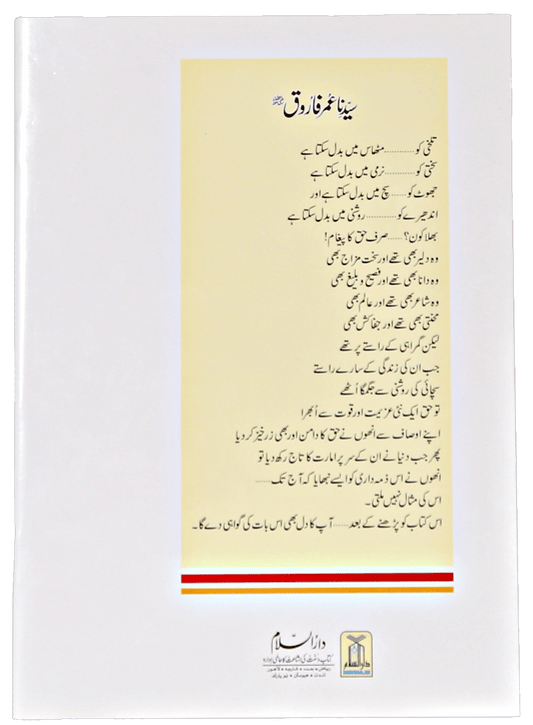 سیّدنا عمر فاروق رضی اللہ عنہ
تلخی کو ............ مٹھاس میں بدل سکتا ہے
سختی کو ............ نرمی میں بدل سکتا ہے
جھوٹ کو ...... سچ میں بدل سکتا ہے اور
اندھیرے کو ............ روشنی میں بدل سکتا ہے
بھلا کون؟ ...... صرف حق کا پیغام!
وہ دلیر بھی تھے اور سخت مزاج بھی
وہ دانا بھی تھے اور فصیح و بلیغ بھی
وہ شاعر بھی تھے اور عالم بھی
محنتی بھی تھے اور جفاکش بھی
لیکن گمراہی کے راستے پر تھے
جب ان کی زندگی کے سارے راستے
سچائی کی روشنی سے جگمگا اُٹھے
تو حق ایک نئی عزیمت اور قوت سے اُبھرا
اپنے اوصاف سے انھوں نے حق کا دامن اور بھی زرخیز کر دیا
پھر جب دنیا نے ان کے سر پر امارت کا تاج رکھ دیا تو
انھوں نے اس ذمہ داری کو ایسے نبھایا کہ آج تک ......
اس کی مثال نہیں ملتی۔
اس کتاب کو پڑھنے کے بعد ...... آپ کا دل بھی اس بات کی گواہی دے گا۔
دارالسّلام
کتاب و سنت کی اشاعت کا عالمی ادارہ
دارالسلام